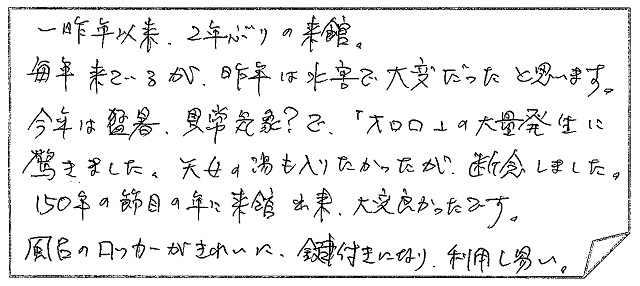 一昨年以来、2年ぶりの来館。
毎年来ているが、昨年は水害で大変だったと思います。
今年は猛暑、異常気象?で、「オロロ」の大量発生に
驚きました。天女の湯も入りたかったが、断念しました。
150年の節目の年に来館出来、大変良かったです。
風呂のロッカーがきれいに、鍵付きになり、利用し易い。